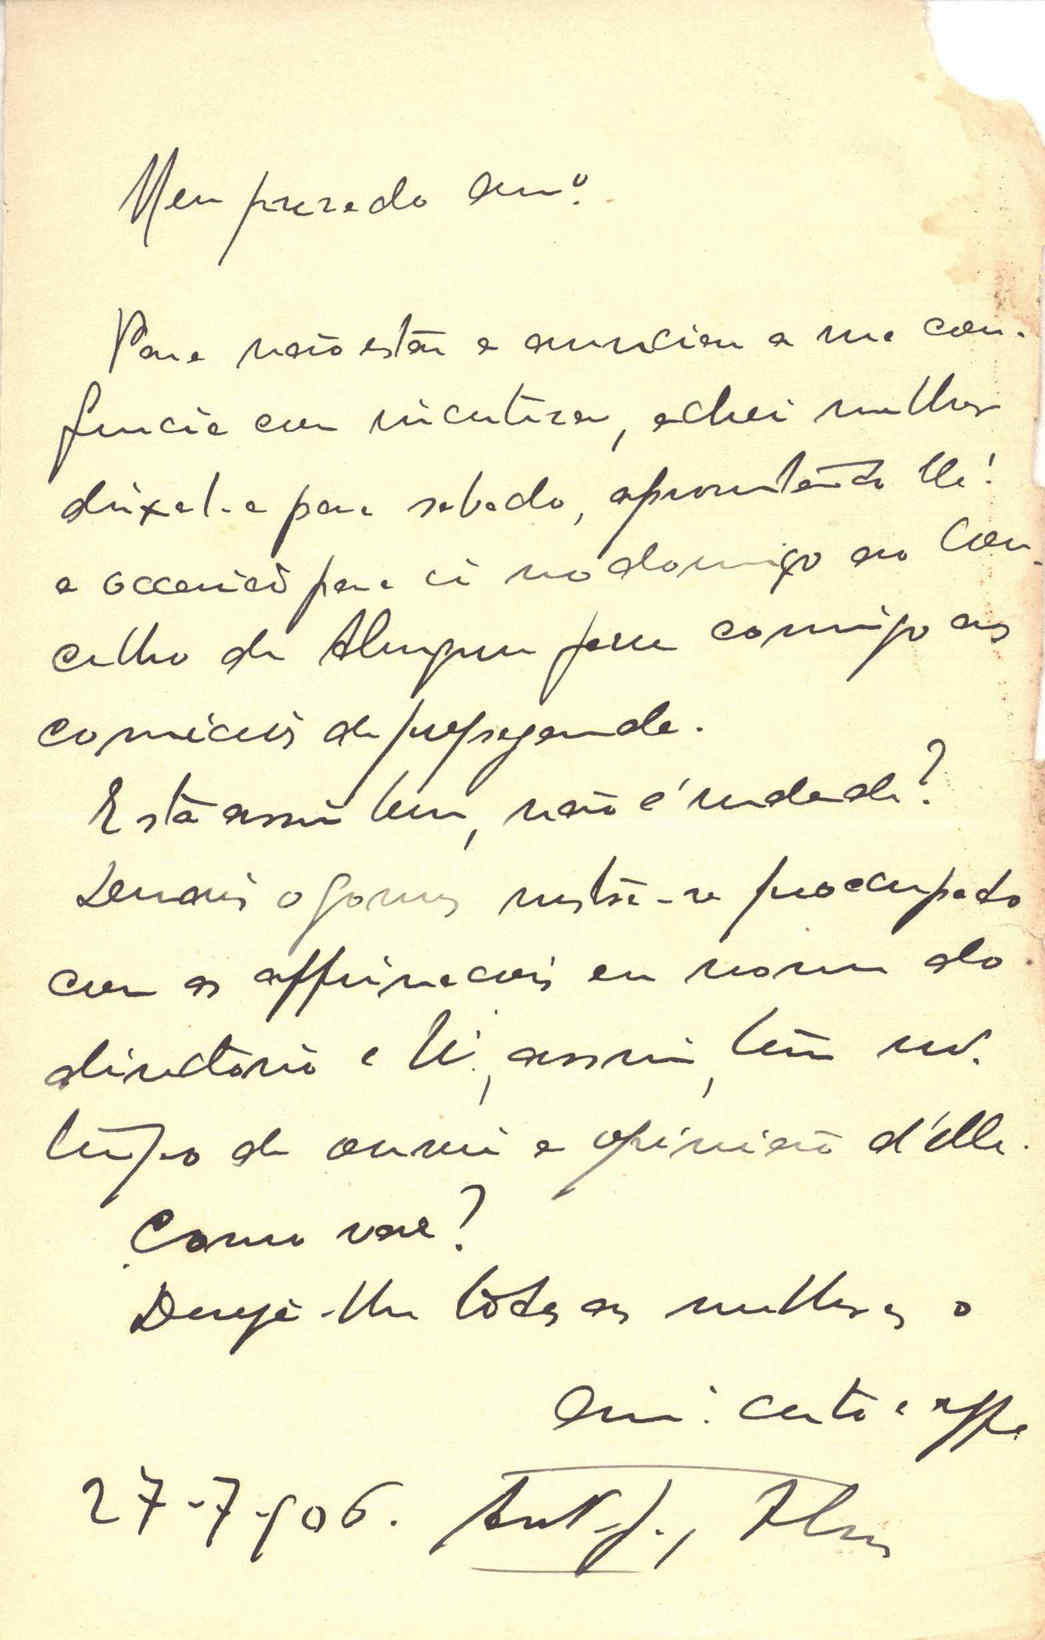 Meu presado Amº.
Para não estar a annunciar a m.ª con-
ferencia com incerteza, achei melhor
deixal-a para sabado, aproveitando
a occasião para ir no domingo ao Con-
celho de Alemquer fazer comigo os
comicios de propaganda.
Está assim bem, não é verdade?
Demais o Gomes mostra-se preoccupado
com as affirmações em nome do
directorio e V., assim, tem
tempo de ouvir a opinião d'elle.
Como vae?
Deseja-lhe todas as melhoras o
Am.º certo e aff.º
27-7-906. José d'Almeida